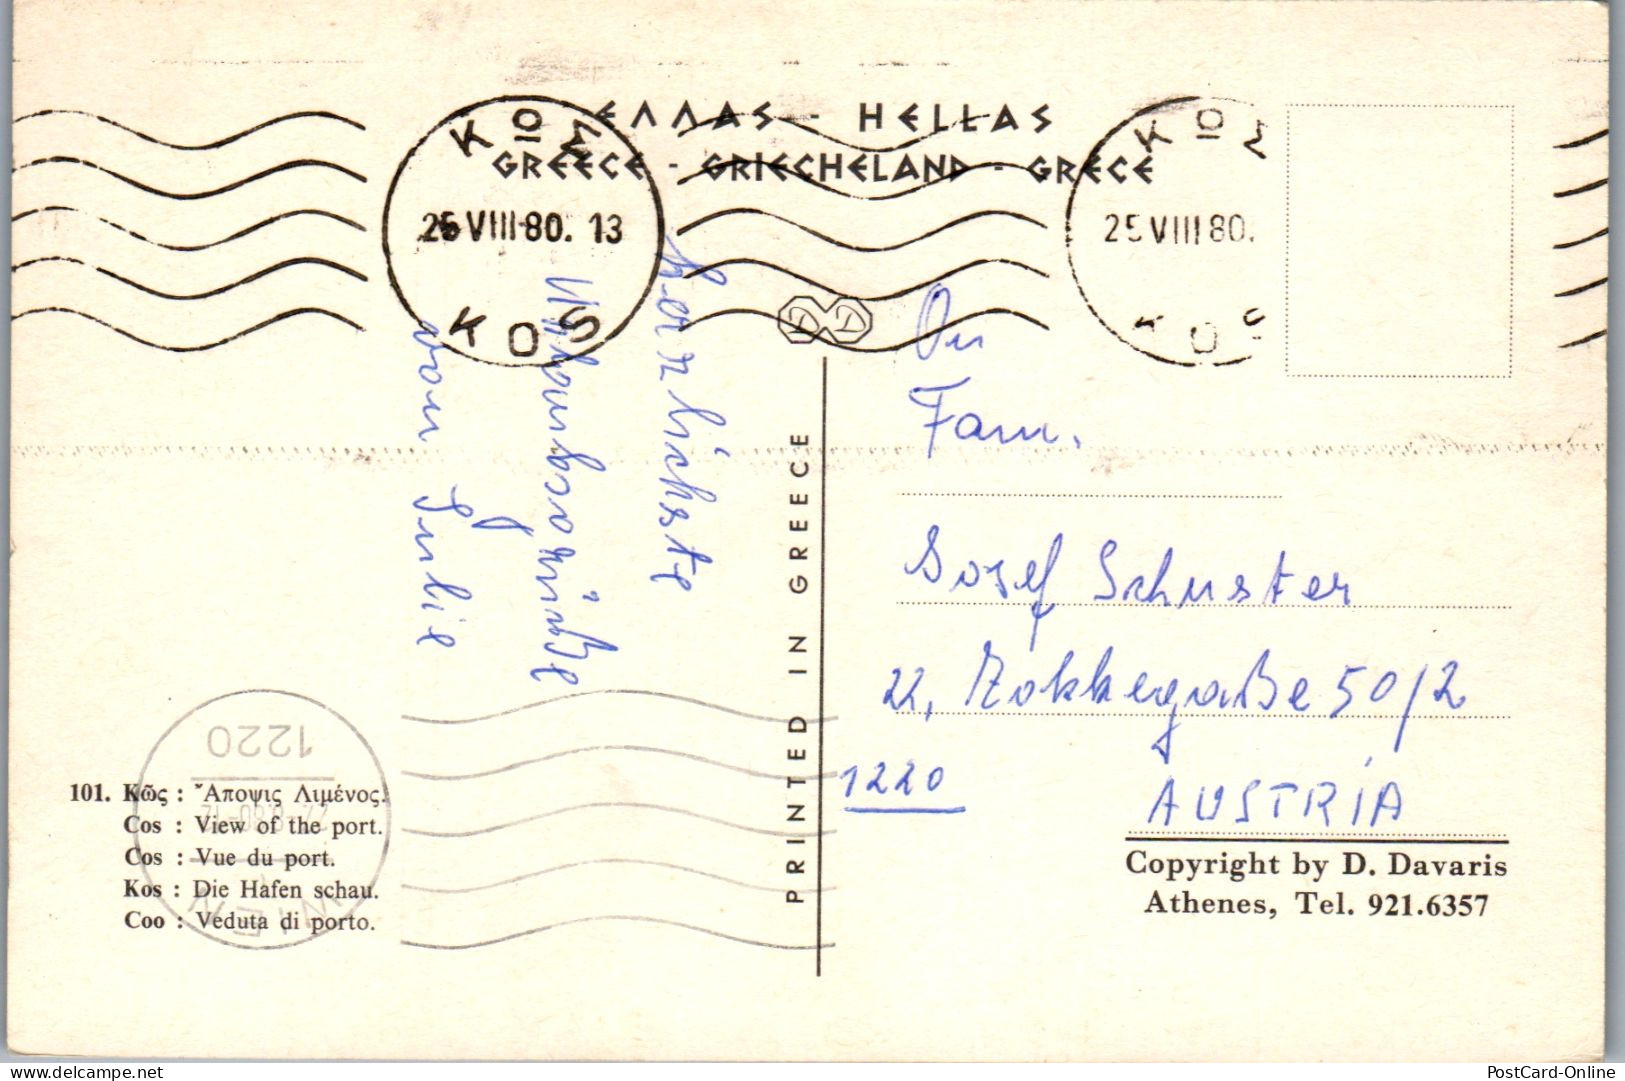 ΕΛΛΑΣ - HELLAS
GREECE - GRIECHELAND - GRECE
ΚΩΣ
25 VIII 80. 13
KOS
ΚΩΣ
25 VIII 80.
KOS
herzlichste
Urlaubsgrüße
von Julie
An
Fam.
Josef Schuster
22, Zokkergaße 50/2
1220
AUSTRIA
PRINTED IN GREECE
1220
WIEN
101. Κῶς : Ἄποψις Λιμένος.
Cos : View of the port.
Cos : Vue du port.
Kos : Die Hafen schau.
Coo : Veduta di porto.
Copyright by D. Davaris
Athenes, Tel. 921.6357
PostCard-Online